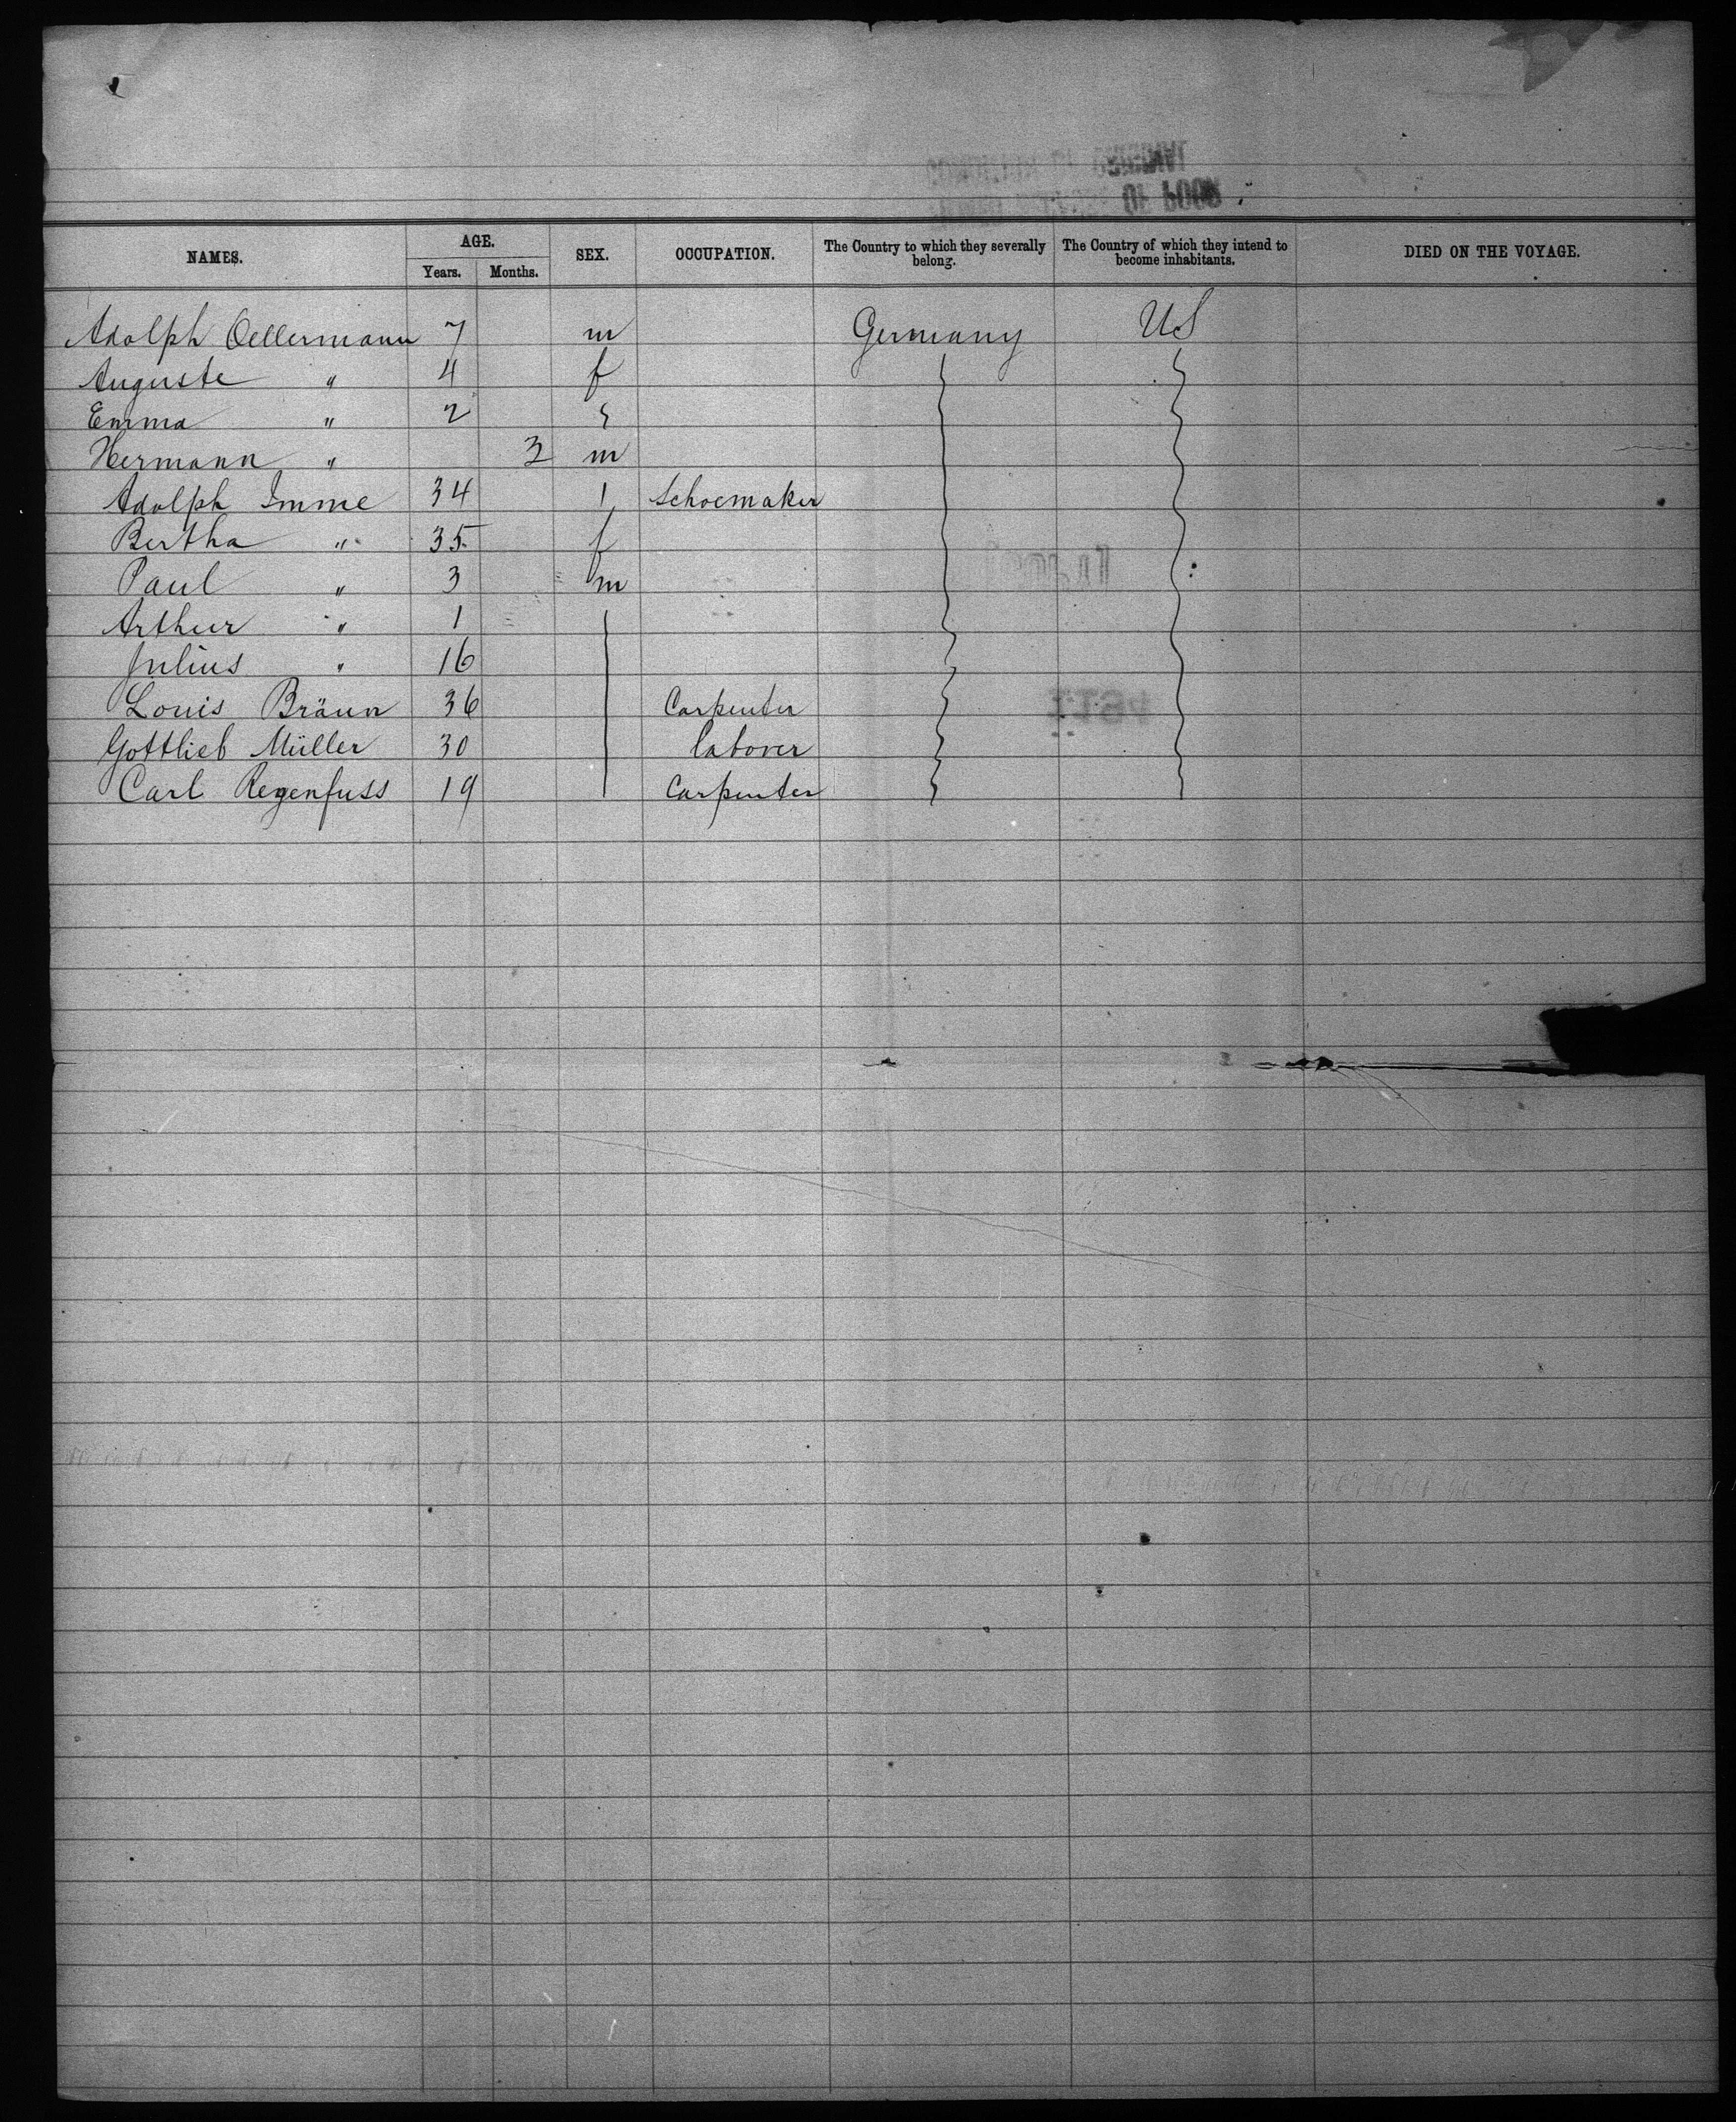 NAMES. AGE. SEX. OCCUPATION. The Country to which they severally belong. The Country of which they intend to become inhabitants. DIED ON THE VOYAGE.
Years. Months.
Adolph Oellermann 7 m Germany US
Auguste " 4 f
Emma " 2
Hermann " 3 m
Adolph Imme 34 Schoemaker
Bertha " 35 f
Paul " 3 m
Arthur " 1
Julius " 16
Louis Bräun 36 Carpenter
Gottlieb Müller 30 labover
Carl Regenfuss 19 Carpenter